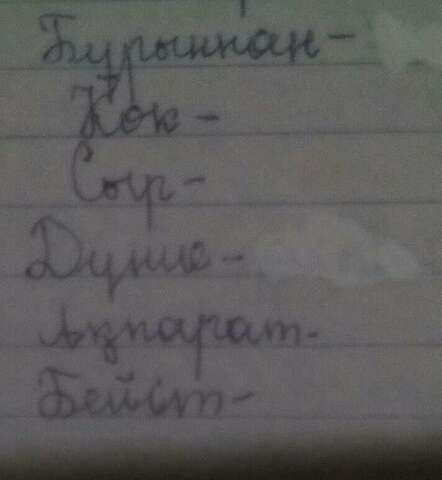 Бурыннан-
Көк-
Сыр-
Дүние-
Ақпарат-
Бейіт-